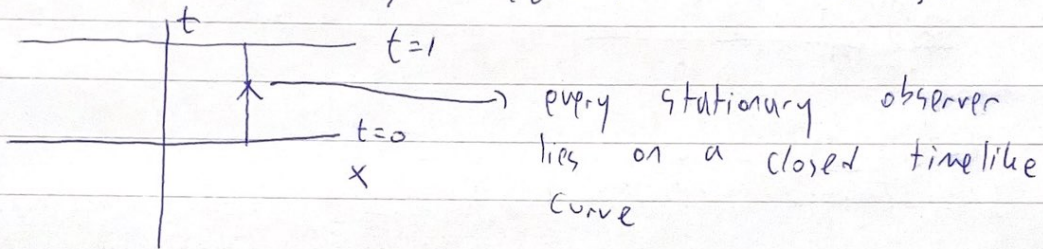 t
t=1
every stationary observer
t=0
lies on a closed timelike
x
curve